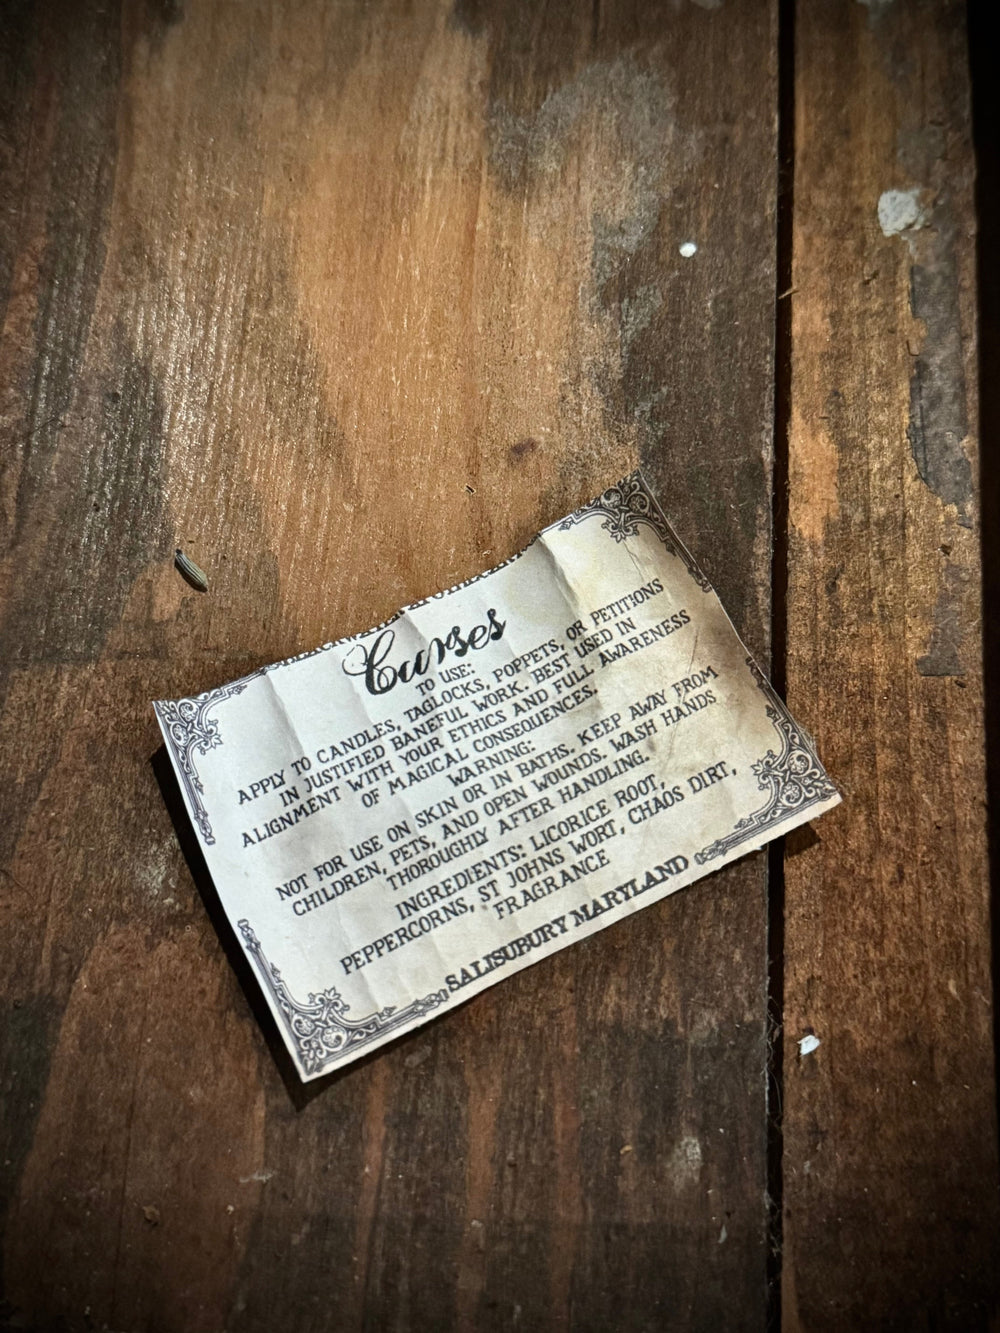 Curses
TO USE:
APPLY TO CANDLES, TAGLOCKS, POPPETS, OR PETITIONS
IN JUSTIFIED BANEFUL WORK. BEST USED IN
ALIGNMENT WITH YOUR ETHICS AND FULL AWARENESS
OF MAGICAL CONSEQUENCES.
WARNING:
NOT FOR USE ON SKIN OR IN BATHS. KEEP AWAY FROM
CHILDREN, PETS, AND OPEN WOUNDS. WASH HANDS
THOROUGHLY AFTER HANDLING.
INGREDIENTS: LICORICE ROOT,
PEPPERCORNS, ST JOHNS WORT, CHAOS DIRT,
FRAGRANCE
SALISUBURY MARYLAND